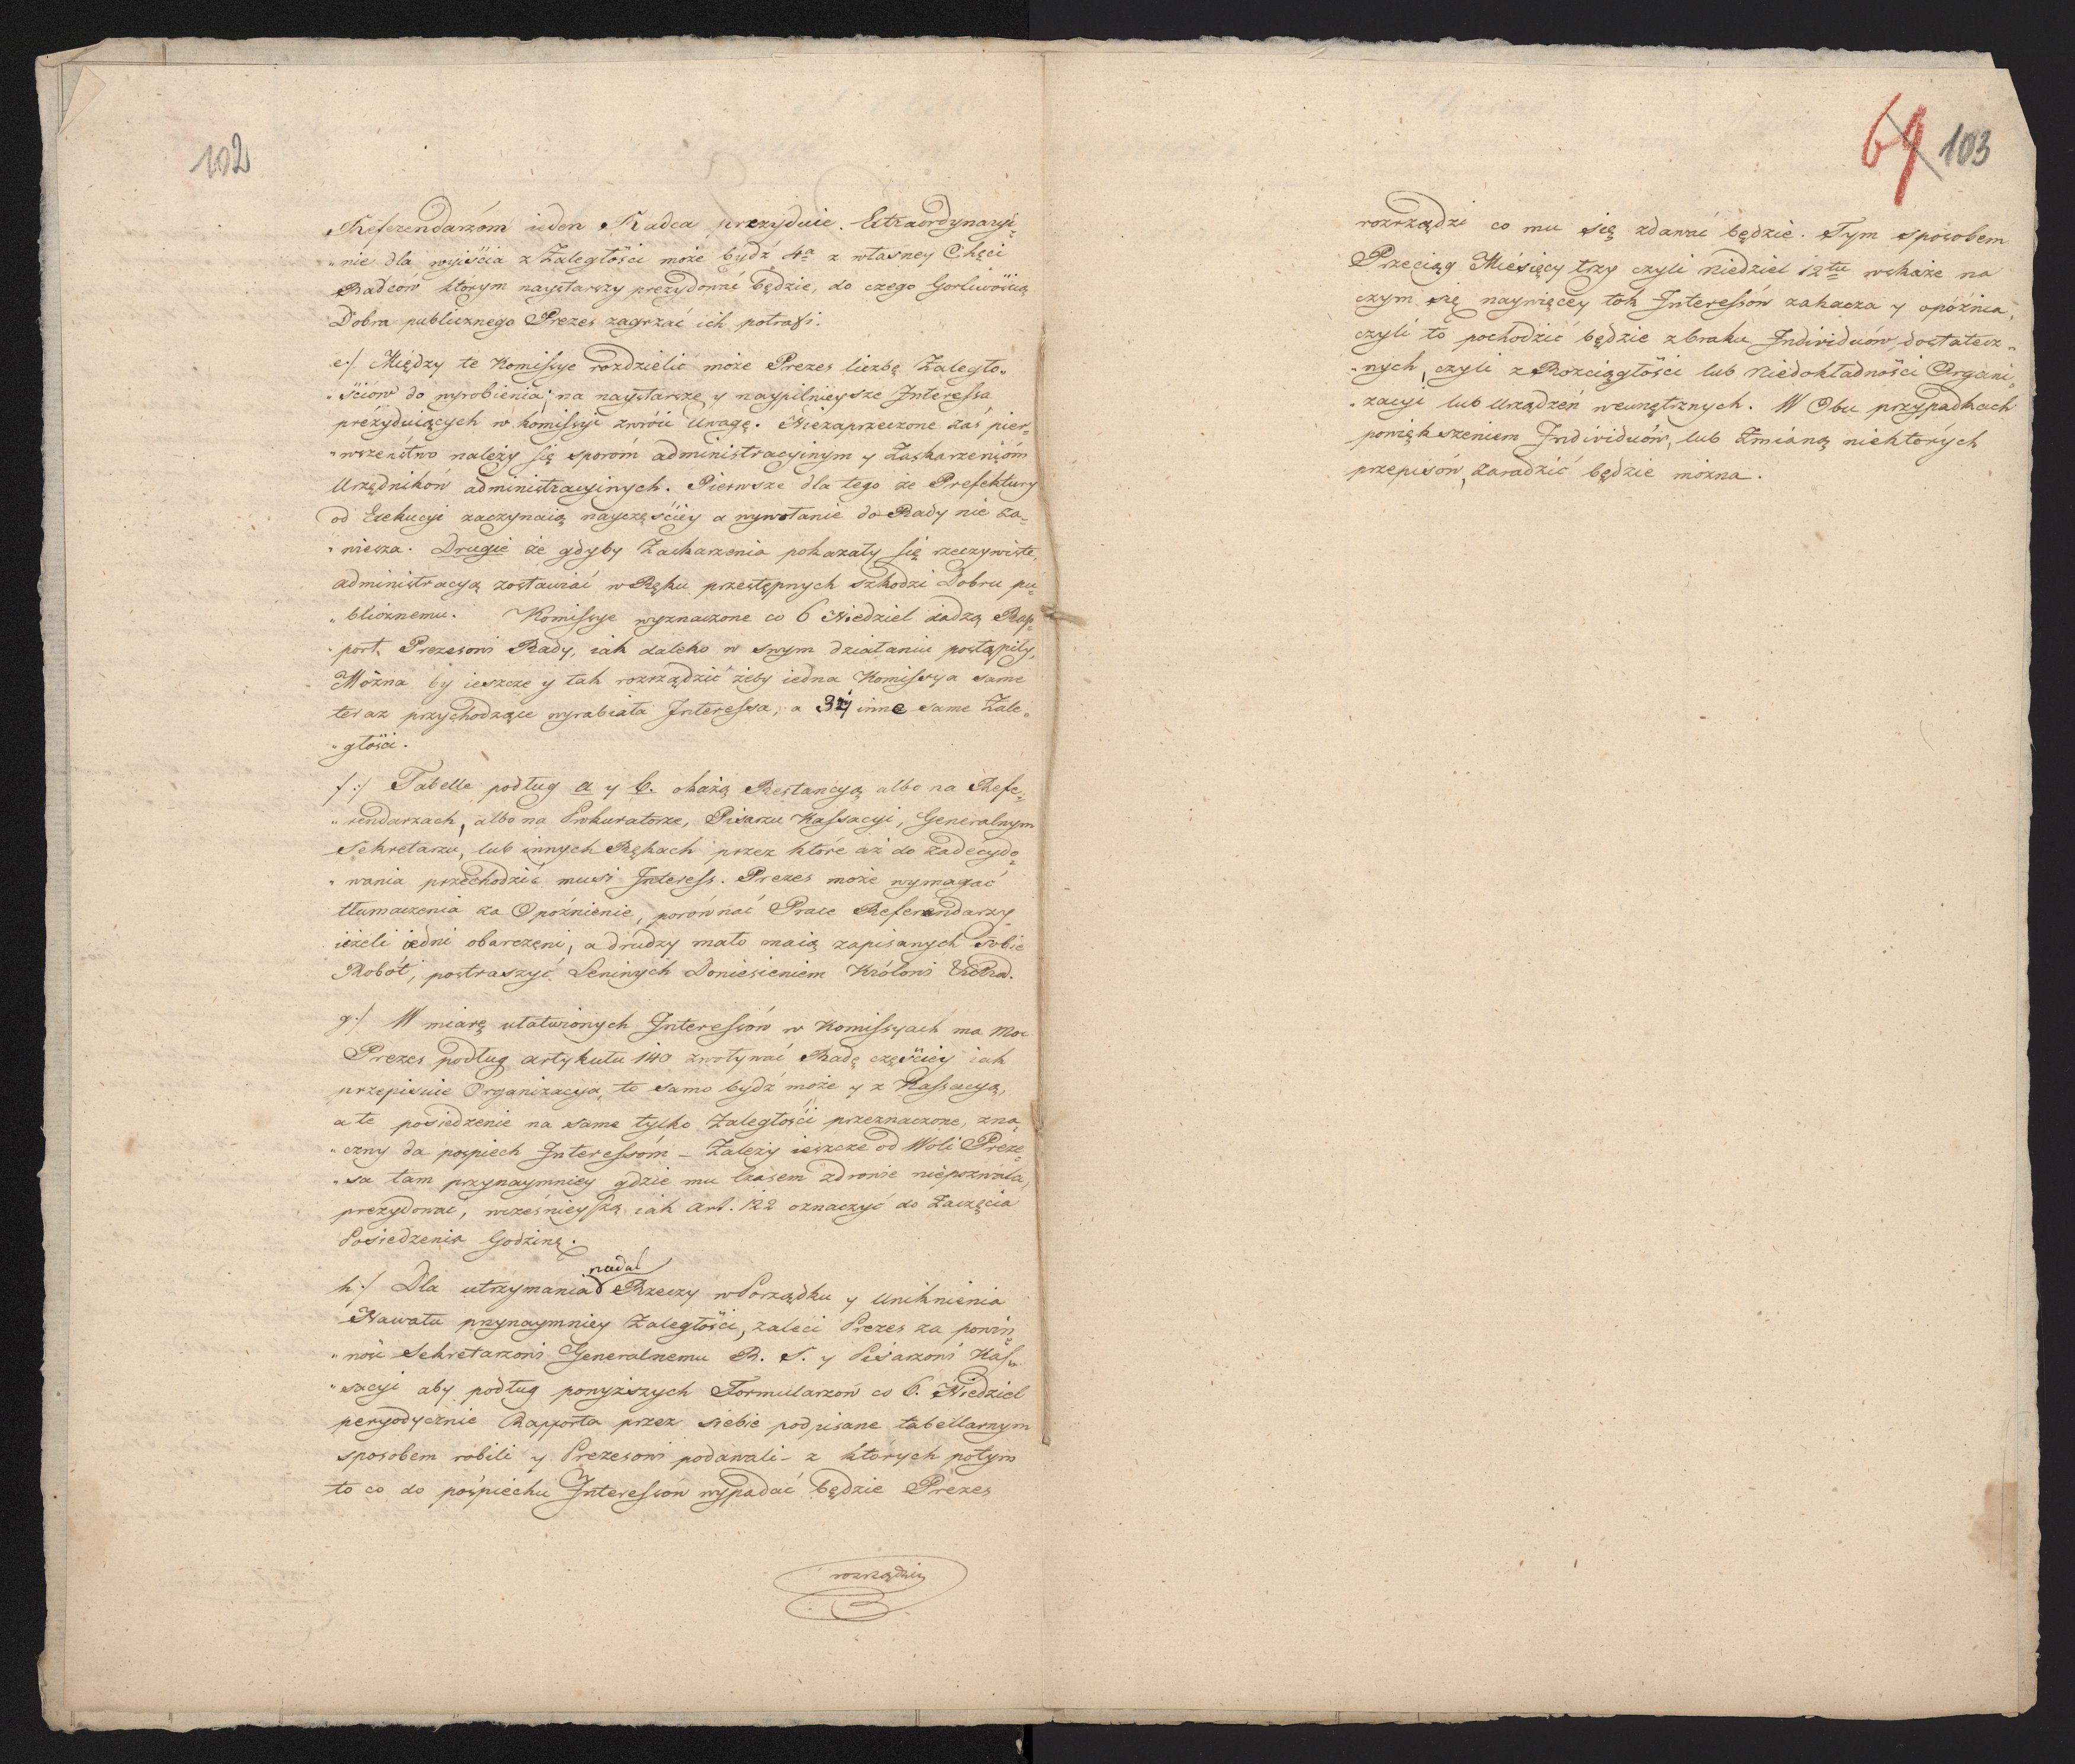 102
Referendarzóm ieden Radca prezyduie. Extraordynaryi=
„nie dla wyiścia z Zaległości może bydź 4ta z własney Chęci
Radców którym naystarszy prezydować będzie, do czego Gorliwością
Dobra publicznego Prezes zagrzać ich potrafi.
e:/ Między te Komissye rozdzielić może Prezes liczbę Zaległo„
„ściow do wyrobienia; na naystarsze y naypilnieysze Interessa
prezyduiących w komissyi zwróci Uwagę. Niezaprzeczone zaś pier=
„wszeństwo należy się sporóm administracyinym y Zaskarzenióm
Urzędników administracyinych. Pierwsze dla tego że Prefektury
od Exekucyi zaczynaią nayczęściey a wywołanie do Rady nie za=
„wiesza. Drugie że gdyby Zaskarzenia pokazały się rzeczywiste,
administracyą zostawiać w Ręku przestępnych szkodzi Dobru pu=
„blicznemu. Komissye wyznaczone co 6 Niedziel dadzą Rap=
„port Prezesowi Rady, iak daleko w swym działaniu postąpiły,
Można by ieszcze y tak rozrządzić żeby iedna Komissya same
teraz przychodzące wyrabiała Interessa, a 3y inne same Zale„
„głości.
f:/ Tabelle podług a y b. okażą Restancyą albo na Refe=
„rendarzach, albo na Prokuratorze, Pisarzu Kassacyi, Generalnym
Sekretarzu, lub innych Rękach przez które aż do zadecydo=
„wania przechodzić musi Interess. Prezes może wymagać
tłumaczenia za Opoźnienie, porównać Prace Referendarzy,
ieżeli iedni obarczeni, a drudzy mało maią zapisanych sobie
Robót, postraszyć Leninych Doniesieniem Królowi
g:/ W miarę ułatwionych Interessów w Komissyach ma Moc
Prezes podług artykułu 140 zwoływać Radę częściey iak
przepisuie Organizacya, to samo bydź może y z Kassacyą,
a te posiedzenie na same tylko Zaległości przeznaczone, zna
„czny da pospiech Interessóm – Zależy ieszcze od Woli Preze=
„sa tam przynaymniey gdzie mu czasem zdrowie niepozwala,
prezydować, wcześnieyszą iak art. 122 oznaczyć do Zaczęcia
Posiedzenia Godzinę.
nadal
h:/ Dla utrzymania Rzeczy w Porządku y Uniknienia
Nawału przynaymniey Zaległości, zaleci Prezes za powin=
„ność Sekretarzowi Generalnemu R. S. y Pisarzowi Kas„
„sacyi aby podług ponyższych Formularzow co 6. Niedziel
peryodycznie Rapporta przez siebie podpisane tabellarnym
sposobem robili y Prezesowi podawali – z których potym
to co do pośpiechu Interessów wypadać będzie Prezes
rozrządzi
64 103
rozrządzi co mu się zdawać będzie. Tym sposobem
Przeciąg Miesięcy trzy czyli Niedziel 12tu wskaże na
czym się naywięcey tok Interessów zahacza y opóźnia,
czyli to pochodzić będzie z braku Individuów dostatecz„
„nych, czyli z Rozciągłości lub Niedokładności Organi=
„zacyi lub Urządzeń wewnętrznych. W Obu przypadkach
powiększeniem Individuów, lub Zmianą niektórych
przepisów, zaradzić będzie można.